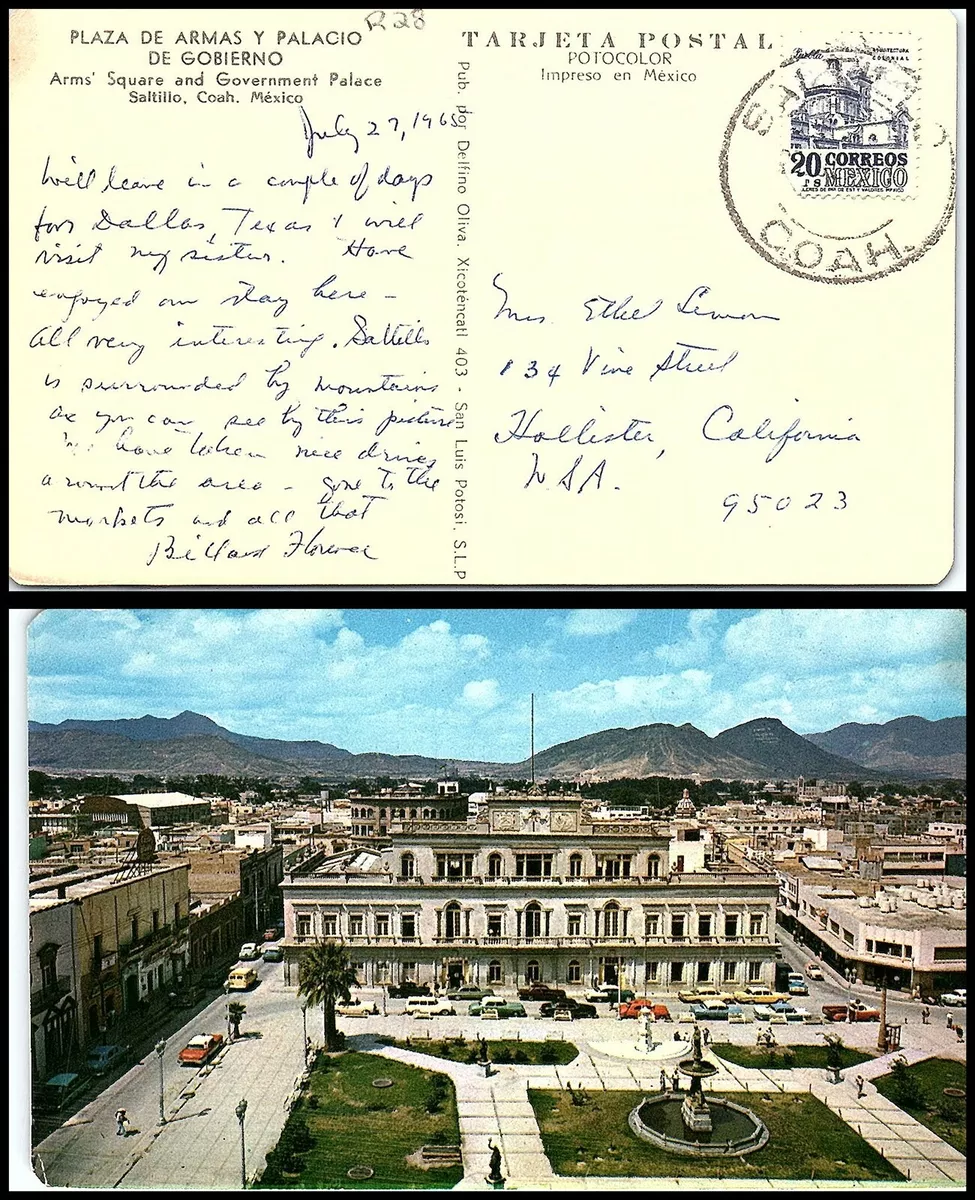 R28
PLAZA DE ARMAS Y PALACIO
DE GOBIERNO
Arms' Square and Government Palace
Saltillo, Coah. México
July 27, 1965
We'll leave in a couple of days
for Dallas, Texas I will
visit my sister. Have
enjoyed our stay here -
All very interesting. Saltillo
is surrounded by mountains
as you can see by this picture
We have taken nice drives
around the area - gone to the
markets and all that
Bill and Florence
Pub. por Delfino Oliva. Xicoténcatl 403 - San Luis Potosí, S.L.P
TARJETA POSTAL
POTOCOLOR
Impreso en México
Puebla ARQUITECTURA
COLONIAL
20 CORREOS
CTS MEXICO
SALTILLO
COAH.
Mrs. Ethel Lemon
134 Vine Street
Hollister, California
USA.
95023